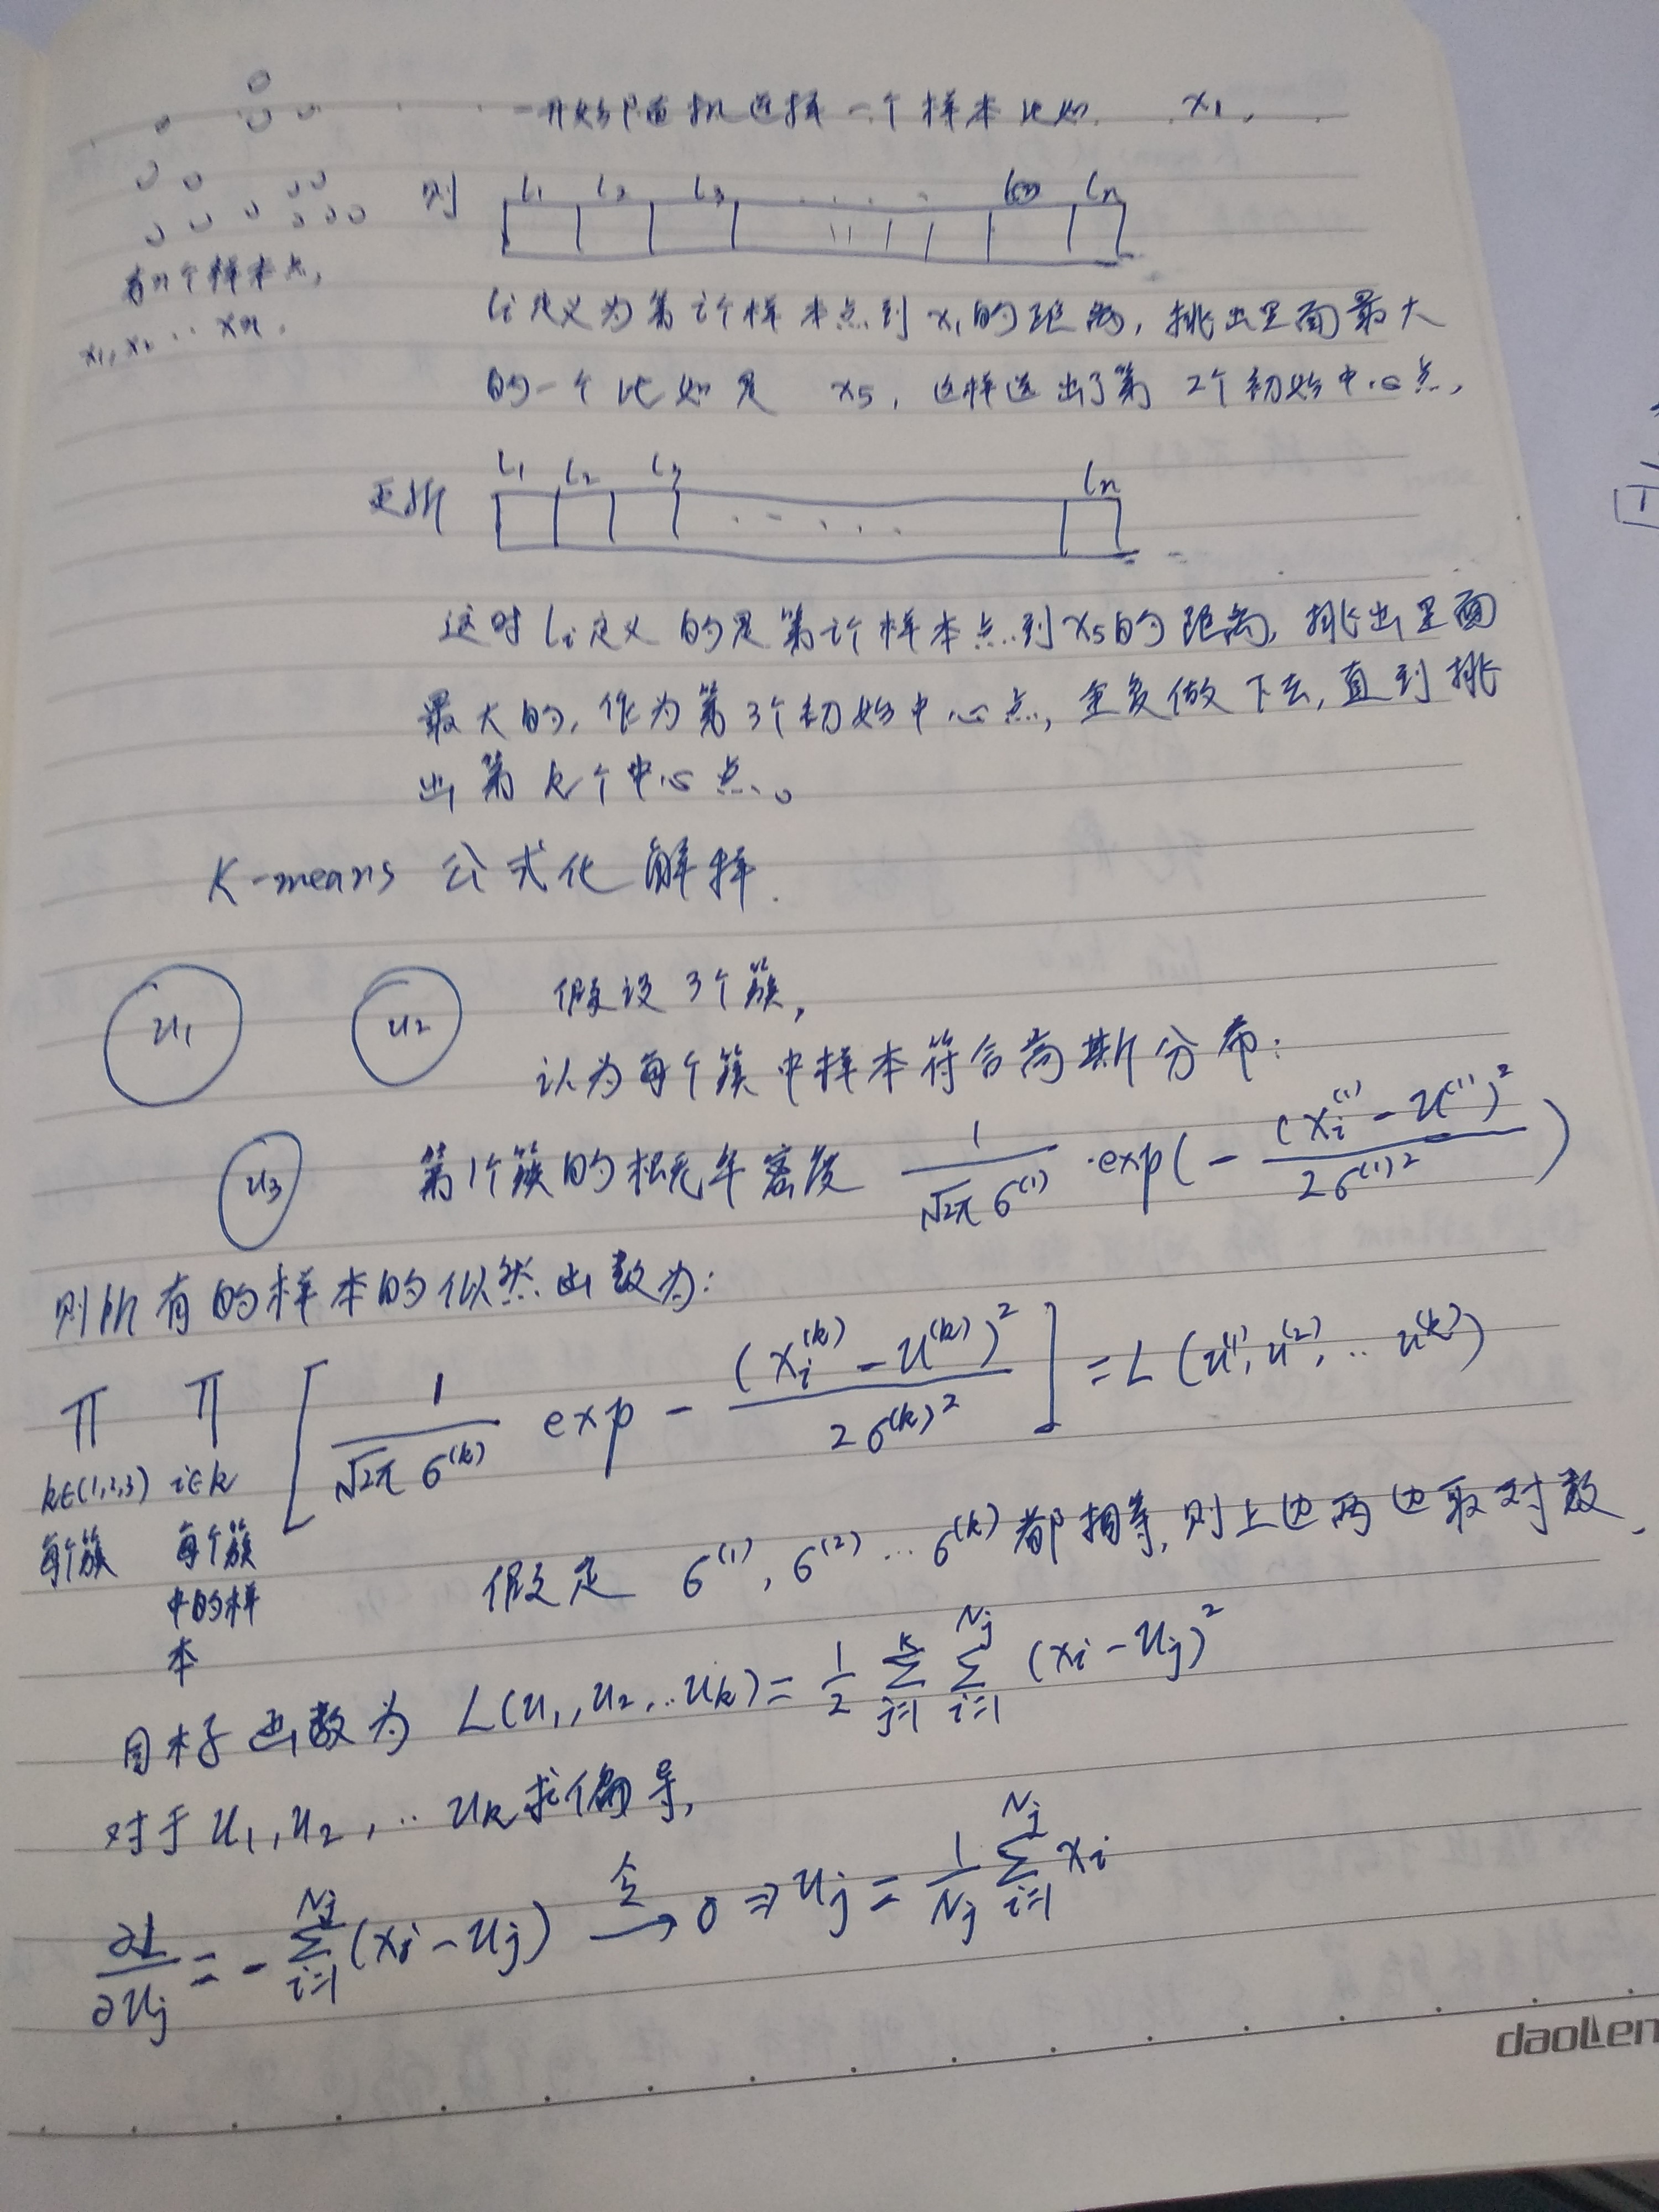 一开始随机选择一个样本比如 x₁,
则 l₁ l₂ l₃ ..... lₙ
有n个样本点,
x₁, x₂ ... xₙ.
lᵢ定义为第i个样本点到x₁的距离, 挑出里面最大
的一个比如是 x₅, 这样选出了第2个初始中心点,
更新 l₁ l₂ l₃ ..... lₙ
这时lᵢ定义的是第i个样本点到x₅的距离, 挑出里面
最大的, 作为第3个初始中心点, 重复做下去, 直到挑
出第k个中心点。
K-means 公式化解释.
u₁ u₂ 假设3个簇,
认为每个簇中样本符合高斯分布:
u₃ 第1个簇的概率密度 1/(√2π σ⁽¹⁾) ·exp(- (xᵢ⁽¹⁾ - u⁽¹⁾)² / 2σ⁽¹⁾²)
则所有的样本的似然函数为:
∏ ∏ [ 1/(√2π σ⁽ᵏ⁾) exp - (xᵢ⁽ᵏ⁾ - u⁽ᵏ⁾)² / 2σ⁽ᵏ⁾² ] = L (u⁽¹⁾, u⁽²⁾, .. u⁽ᵏ⁾)
k∈(1,2,3) i∈k
每个簇 每个簇
中的样
本
假定 σ⁽¹⁾, σ⁽²⁾ ... σ⁽ᵏ⁾ 都相等, 则上边两边取对数,
目标函数为 L(u₁, u₂, .. uₖ) = 1/2 ∑ⱼ₌₁ᴷ ∑ᵢ₌₁ᴺʲ (xᵢ - uⱼ)²
对于 u₁, u₂, .. uₖ求偏导,
∂L/∂uⱼ = - ∑ᵢ₌₁ᴺʲ (xᵢ - uⱼ) 令→ 0 ⇒ uⱼ = 1/Nⱼ ∑ᵢ₌₁ᴺʲ xᵢ